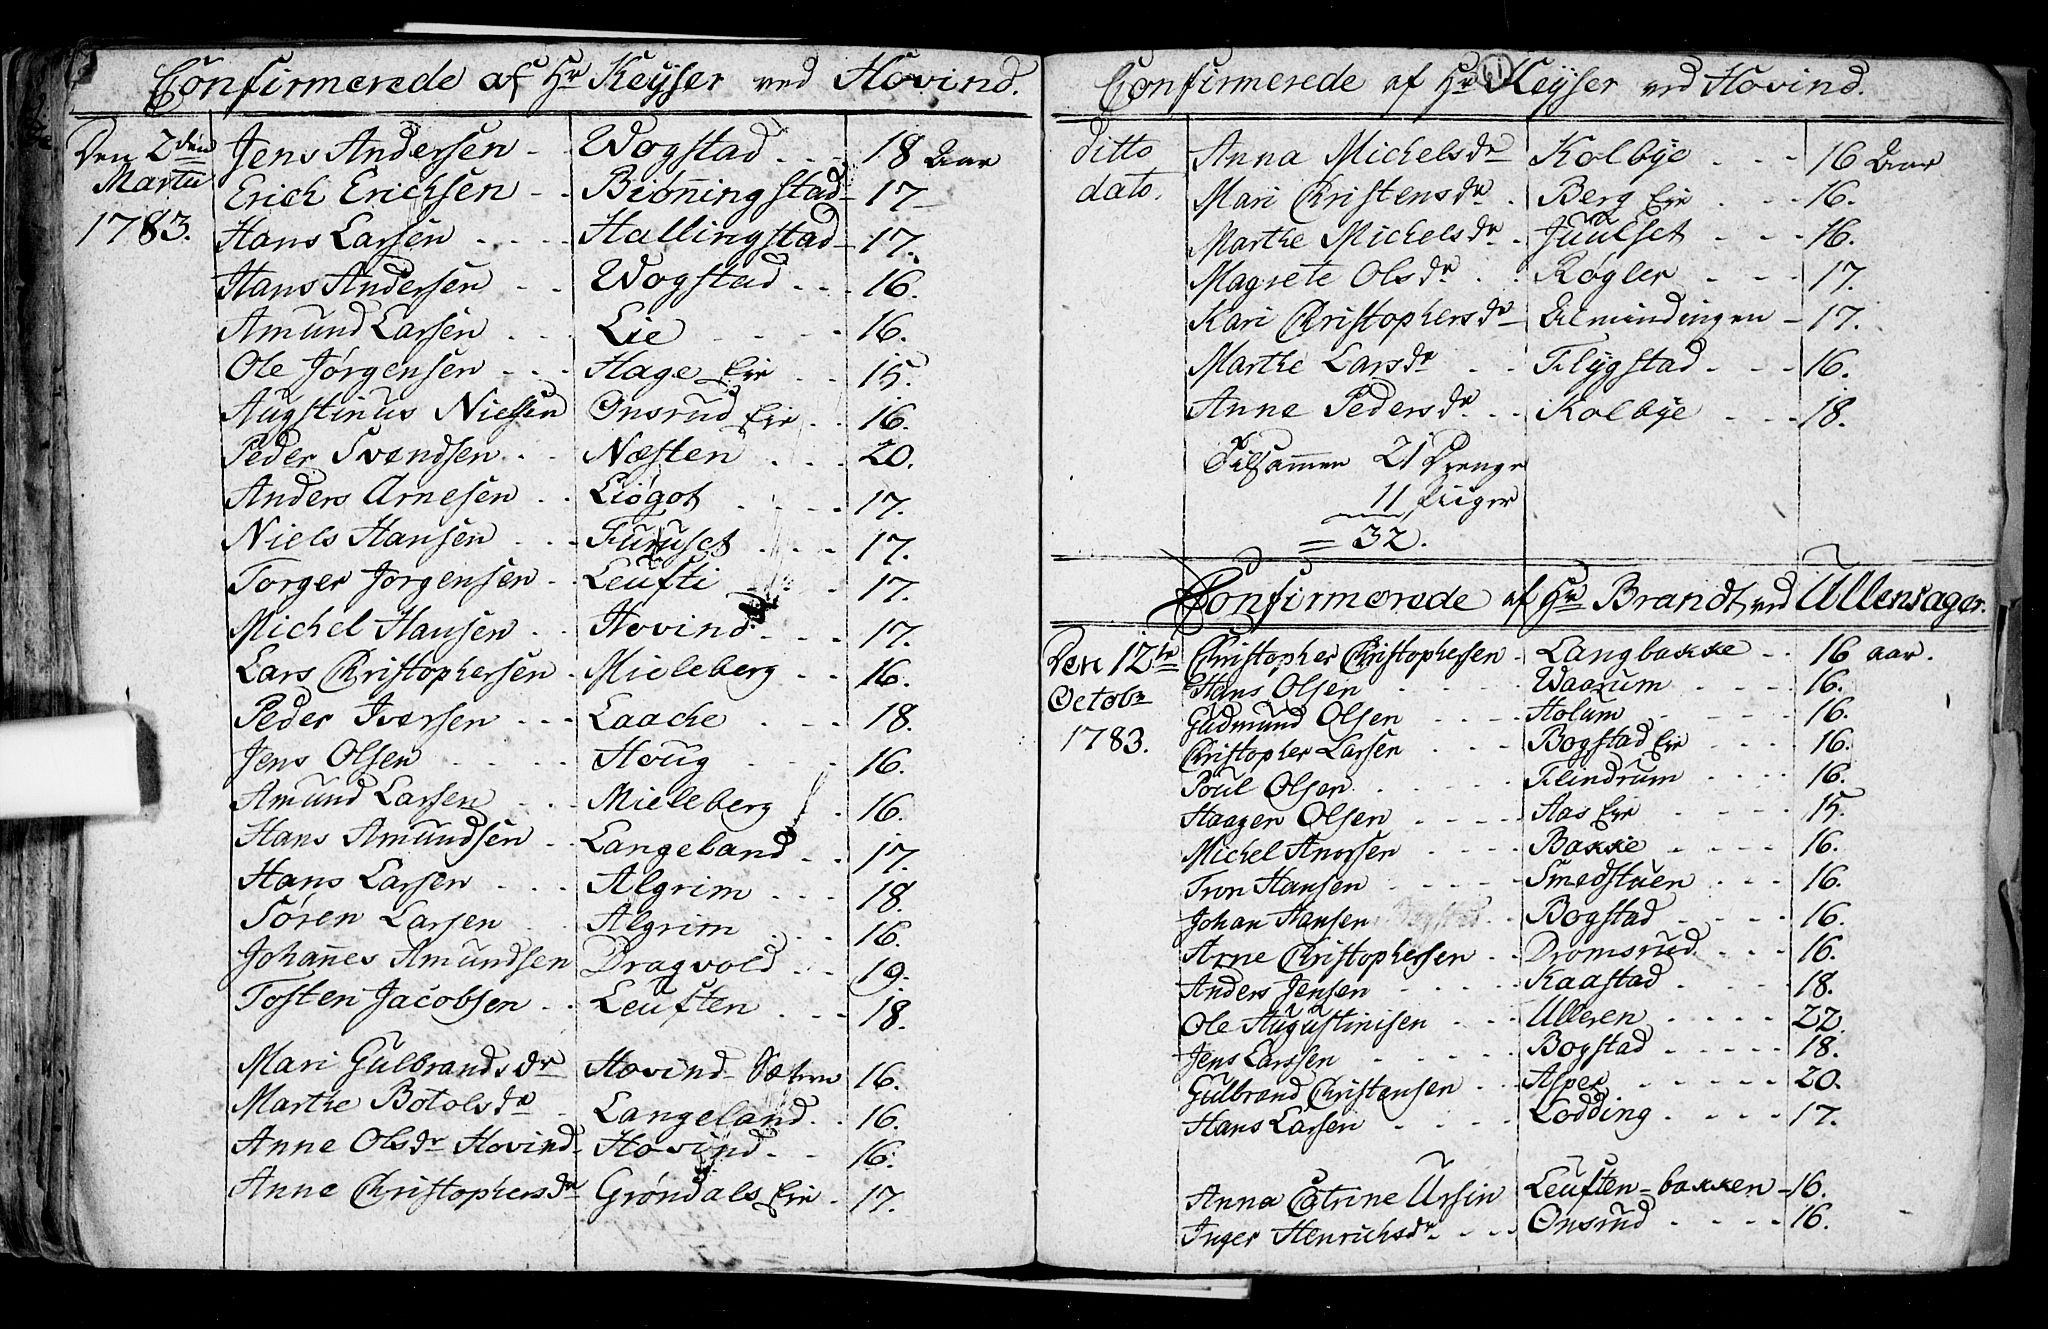 Confirmerede af Hr Keyser ved Hovind.
Den 2den Jens Andersen - Wogstad - 18 Aar
Martii Erich Erichsen - Biönningstad - 17
1783. Hans Larsen - Hallingstad - 17.
Hans Andersen - Wogstad - 16.
Amund Larsen - Lie - 16.
Ole Jørgensen - Hage Eie - 15.
Augstinus Nielsen Onsrud Eie - 16.
Peder Svendsen - Næsten - 20.
Anders Arnesen - Liøgot - 17.
Niels Hansen - Furuset - 17.
Torger Jorgensen - Leufti - 17.
Michel Hansen - Hovind - 17.
Lars Christophersen - Mieleberg - 16.
Peder Iversen - Laache - 18.
Jens Olsen - Houg - 16.
Amund Larsen - Mieleberg - 16.
Hans Amundsen - Langeland - 17.
Hans Larsen - Algrim - 18.
Søren Larsen - Algrim - 16.
Johannes Amundsen Dragvold - 19.
Tosten Jacobsen - Leuften - 18.
Mari Gulbrandsdr Hovind - 16.
Marthe Botolsdr - Langeland - 16.
Anne Olsdr Hovind - Hovind - 16.
Anne Christophersdr Grøndals Eie - 17.
61
Confirmerede af Hr Keyser ved Hovind.
ditto Anna Michelsdr - Kolbye - 16 Aar
dato. Mari Christensdr - Berg Eie - 16.
Marthe Michelsdr - Juulset - 16.
Magrete Olsdr - Røgler - 17.
Kari Christophersdr - Almindingen - 17.
Marthe Larsdr - Flygstad - 16.
Anne Pedersdr - Kolbye - 18.
Tilsammen 21 Drenge
11 Piiger
32.
Confirmerede af Hr Brandt ved Ullensager.
Den 12te Christopher Christophersen - Langbakke - 16 aar.
Octobr Hans Olsen - Waarum - 16.
1783. Gudmund Olsen - Holum - 16.
Christopher Larsen - Bogstad Eie - 16.
Poul Olsen - Flindrum - 16.
Haagen Olsen - Aas Eie - 15.
Michel Anorsen - Bakke - 16.
Tron Hansen - Smedstuen - 16.
Johan Hansen - Bogstad - 16.
Arne Christophersen - Dromsrud - 16.
Anders Jensen - Kaastad - 18.
Ole Augustinisen - Ulleren - 22.
Jens Larssen - Bogstad - 18.
Gulbrand Christensen - Asper - 20.
Hans Larsen - Lodding - 17.
Anna Catrine Ursin Leuften-bakken - 16.
Inger Henrichsdr - Onsrud - 16.